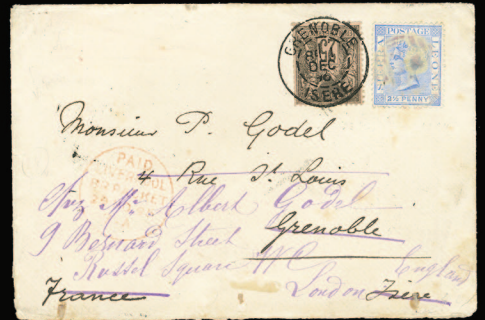 GRENOBLE
DEC
ISERE
SIERRA LEONE
POSTAGE
2½ PENNY
Monsieur P. Godel
PAID
LIVERPOOL
BR PACKET
4 Rue St Louis
Chez Mr Albert Godel
Grenoble
9 Bernard Street
Russel Square WC
England
London
France
Isère